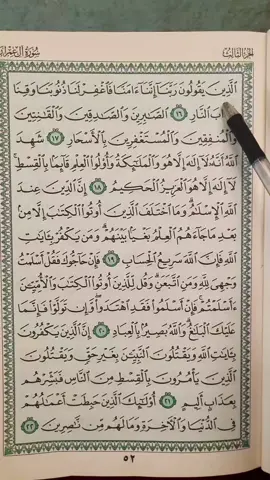 الجزء الثالث
سورة آل عمران
الَّذِينَ يَقُولُونَ رَبَّنَا إِنَّنَا ءَامَنَّا فَاغْفِرْ لَنَا ذُنُوبَنَا وَقِنَا
عَذَابَ النَّارِ ١٦ الصَّابِرِينَ وَالصَّادِقِينَ وَالْقَانِتِينَ
وَالْمُنفِقِينَ وَالْمُسْتَغْفِرِينَ بِالْأَسْحَارِ ١٧ شَهِدَ
اللَّهُ أَنَّهُ لَا إِلَهَ إِلَّا هُوَ وَالْمَلَائِكَةُ وَأُولُوا الْعِلْمِ قَائِمًا بِالْقِسْطِ
لَا إِلَهَ إِلَّا هُوَ الْعَزِيزُ الْحَكِيمُ ١٨ إِنَّ الدِّينَ عِندَ
اللَّهِ الْإِسْلَامُ وَمَا اخْتَلَفَ الَّذِينَ أُوتُوا الْكِتَابَ إِلَّا مِن
بَعْدِ مَا جَاءَهُمُ الْعِلْمُ بَغْيًا بَيْنَهُمْ وَمَن يَكْفُرْ بِآيَاتِ
اللَّهِ فَإِنَّ اللَّهَ سَرِيعُ الْحِسَابِ ١٩ فَإِنْ حَاجُّوكَ فَقُلْ أَسْلَمْتُ
وَجْهِيَ لِلَّهِ وَمَنِ اتَّبَعَنِ وَقُل لِّلَّذِينَ أُوتُوا الْكِتَابَ وَالْأُمِّيِّينَ
ءَأَسْلَمْتُمْ فَإِنْ أَسْلَمُوا فَقَدِ اهْتَدَوا وَّإِن تَوَلَّوْا فَإِنَّمَا
عَلَيْكَ الْبَلَاغُ وَاللَّهُ بَصِيرٌ بِالْعِبَادِ ٢٠ إِنَّ الَّذِينَ يَكْفُرُونَ
بِآيَاتِ اللَّهِ وَيَقْتُلُونَ النَّبِيِّينَ بِغَيْرِ حَقٍّ وَيَقْتُلُونَ
الَّذِينَ يَأْمُرُونَ بِالْقِسْطِ مِنَ النَّاسِ فَبَشِّرْهُم
بِعَذَابٍ أَلِيمٍ ٢١ أُولَئِكَ الَّذِينَ حَبِطَتْ أَعْمَالُهُمْ
فِي الدُّنْيَا وَالْآخِرَةِ وَمَا لَهُم مِّن نَّاصِرِينَ ٢٢
٥٢